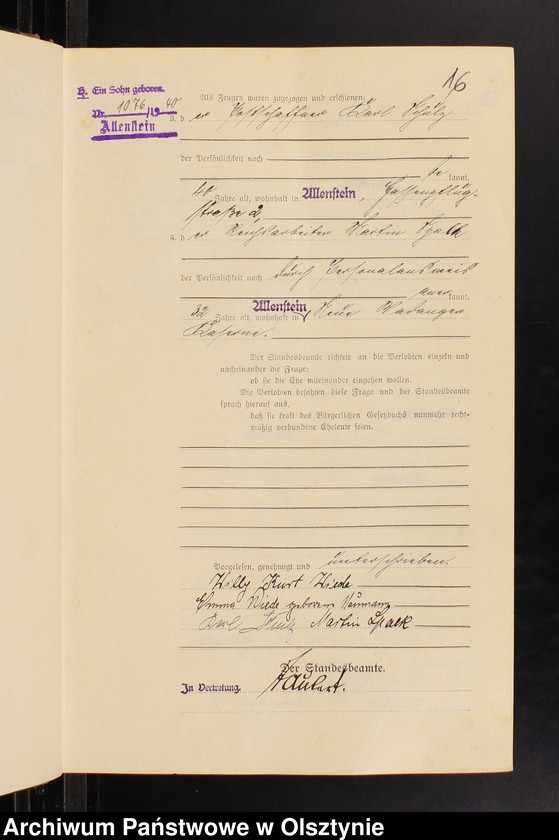 16
H. Ein Sohn geboren.
Nr. 1076/1940
Allenstein
Als Zeugen waren zugezogen und erschienen:
3. der Postschaffner Karl Schulz
der Persönlichkeit nach
be kannt,
40 Jahre alt, wohnhaft in Allenstein,
straße 2,
4. der Reichsarbeiter Martin Spaek
der Persönlichkeit nach durch Personalausweis
aner kannt,
32 Jahre alt, wohnhaft in Allenstein, Neue Wadanger
Kaserne.
Der Standesbeamte richtete an die Verlobten einzeln und
nacheinander die Frage:
ob sie die Ehe miteinander eingehen wollen.
Die Verlobten bejahten diese Frage und der Standesbeamte
sprach hierauf aus,
daß sie kraft des Bürgerlichen Gesetzbuchs nunmehr recht-
mäßig verbundene Eheleute seien.
Vorgelesen, genehmigt und unterschrieben.
Willy Kurt Wiede
Emma Wiede geborene Neumann
Karl Schulz Martin Spaek
Der Standesbeamte.
In Vertretung.
Archiwum Państwowe w Olsztynie